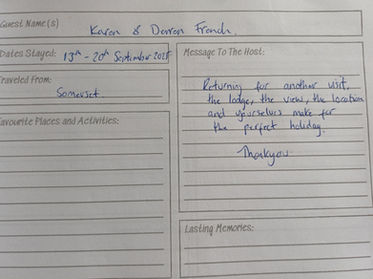 Guest Name(s)
Karen & Darren French.
Dates Stayed: 13th - 20th September 2025
Message To The Host:
Traveled From:
Somerset.
Returning for another visit,
the lodge, the view, the location
and yourselves make for
the perfect holiday.
Thankyou
Favourite Places and Activities:
Lasting Memories: